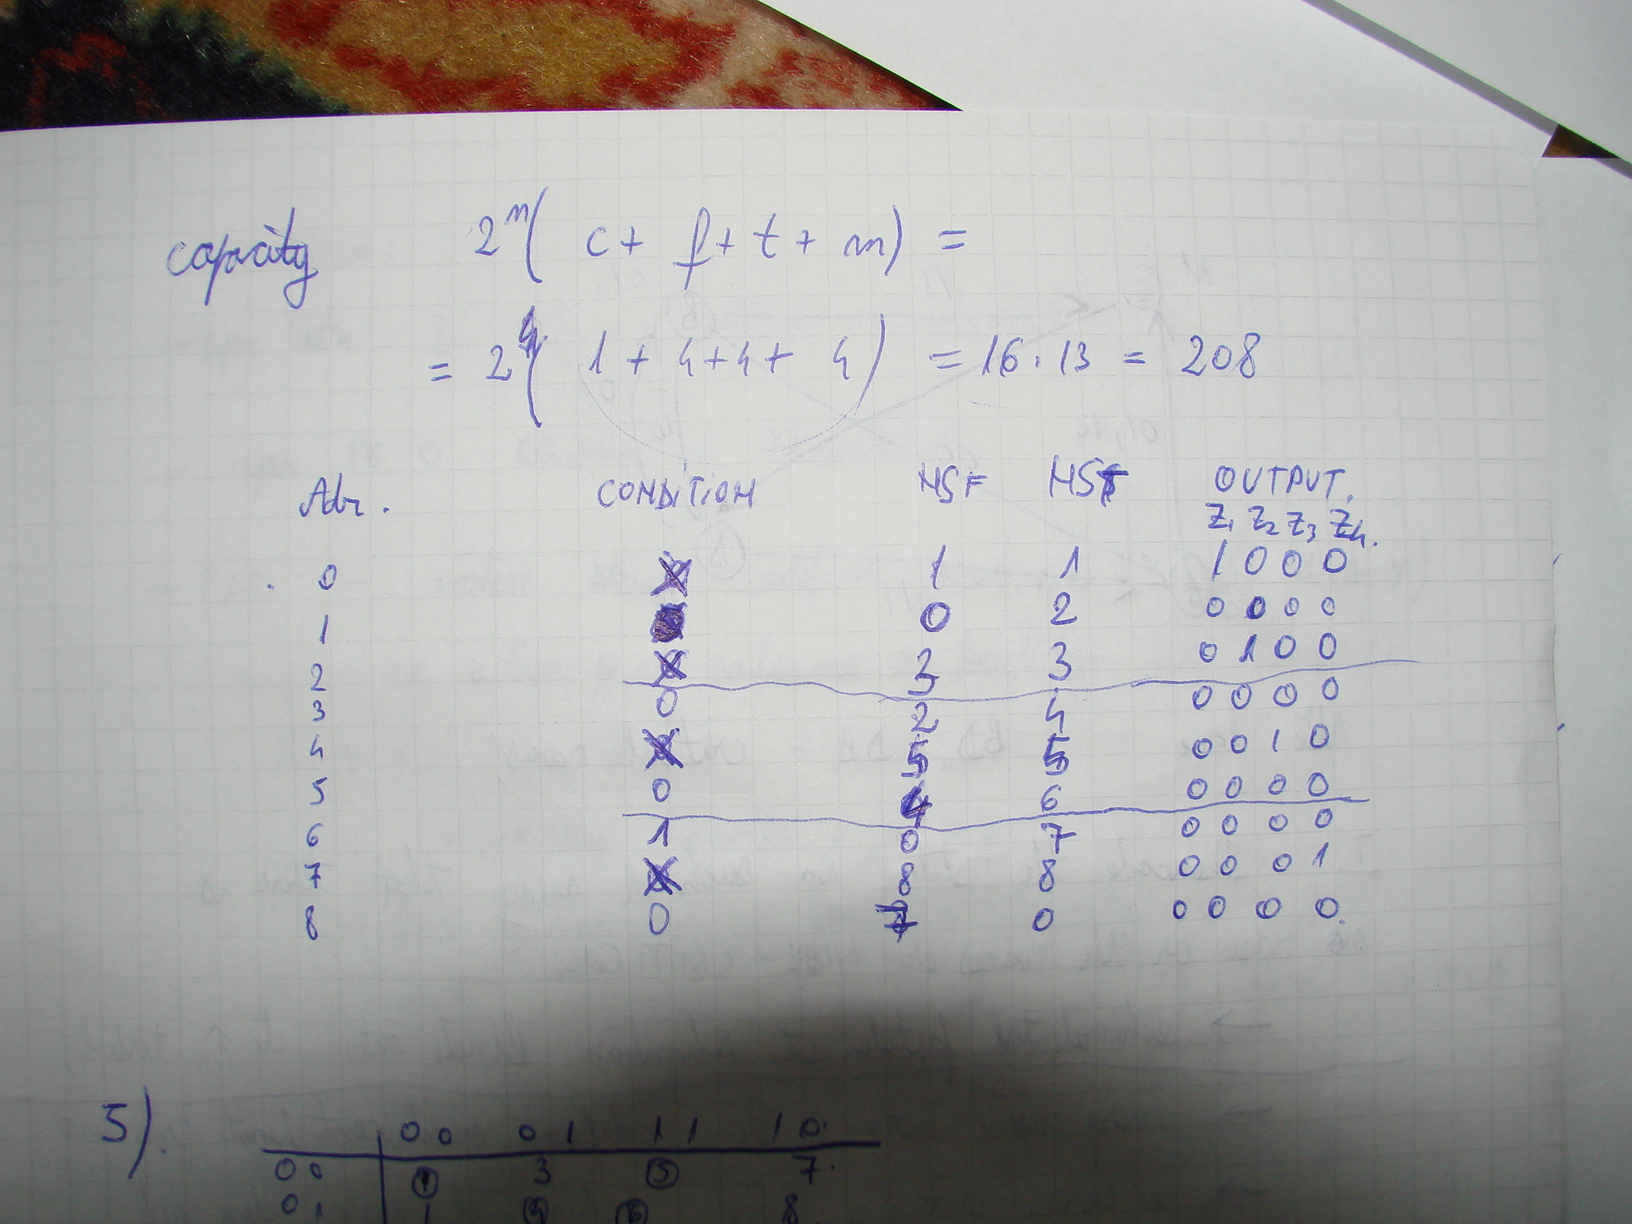 capacity 2^n( c + f + t + m) =
= 2^4( 1 + 4+4+ 4) = 16.13 = 208
Adr. CONDITION NSF NST OUTPUT.
Z1 Z2 Z3 Z4.
0 X 1 1 1 0 0 0
1 0 2 0 0 0 0
2 X 3 3 0 1 0 0
3 0 2 4 0 0 0 0
4 X 5 5 0 0 1 0
5 0 4 6 0 0 0 0
6 1 0 7 0 0 0 0
7 X 8 8 0 0 0 1
8 0 7 0 0 0 0 0.
5). 00 01 11 10.
00 1 3 5 7.
01 1 8